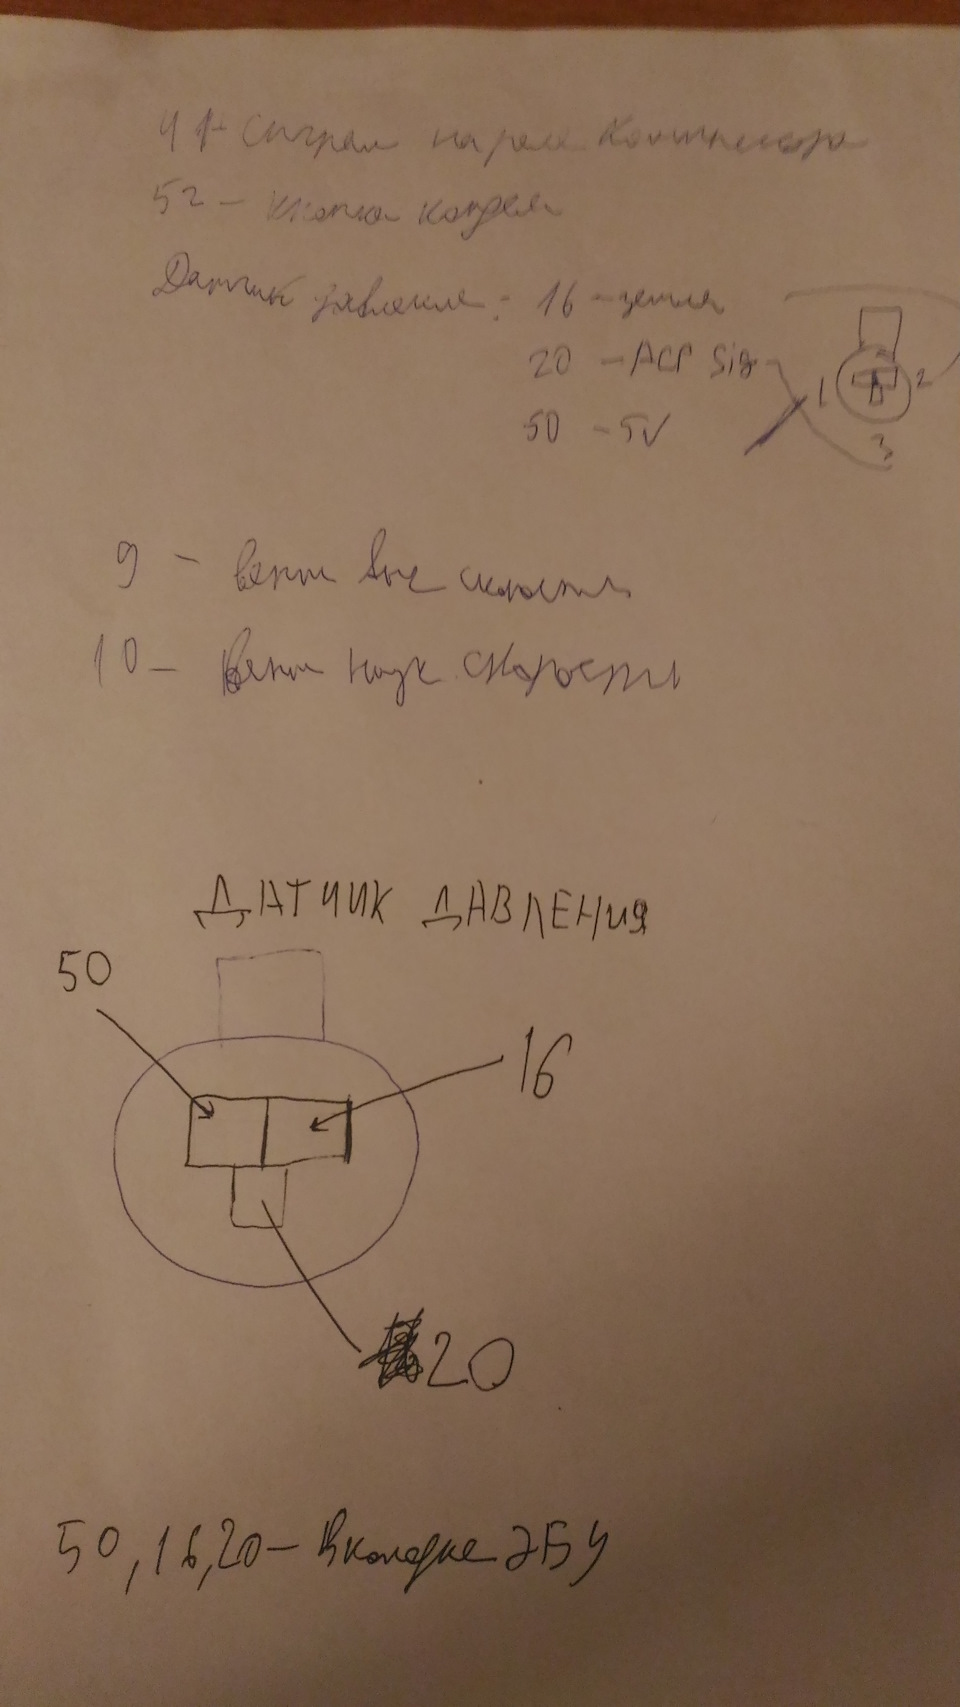 41- Сигнал на реле Компрессора
52 - кнопка кондея
Датчик давление: 16 - земля
20 - ACP Sig
50 - 5V
1 2
3
9 - вент выс скорость
10 - Вент низк скорость
ДАТЧИК ДАВЛЕНИЯ
50
16
20
50, 16, 20 - В колодке ЭБУ